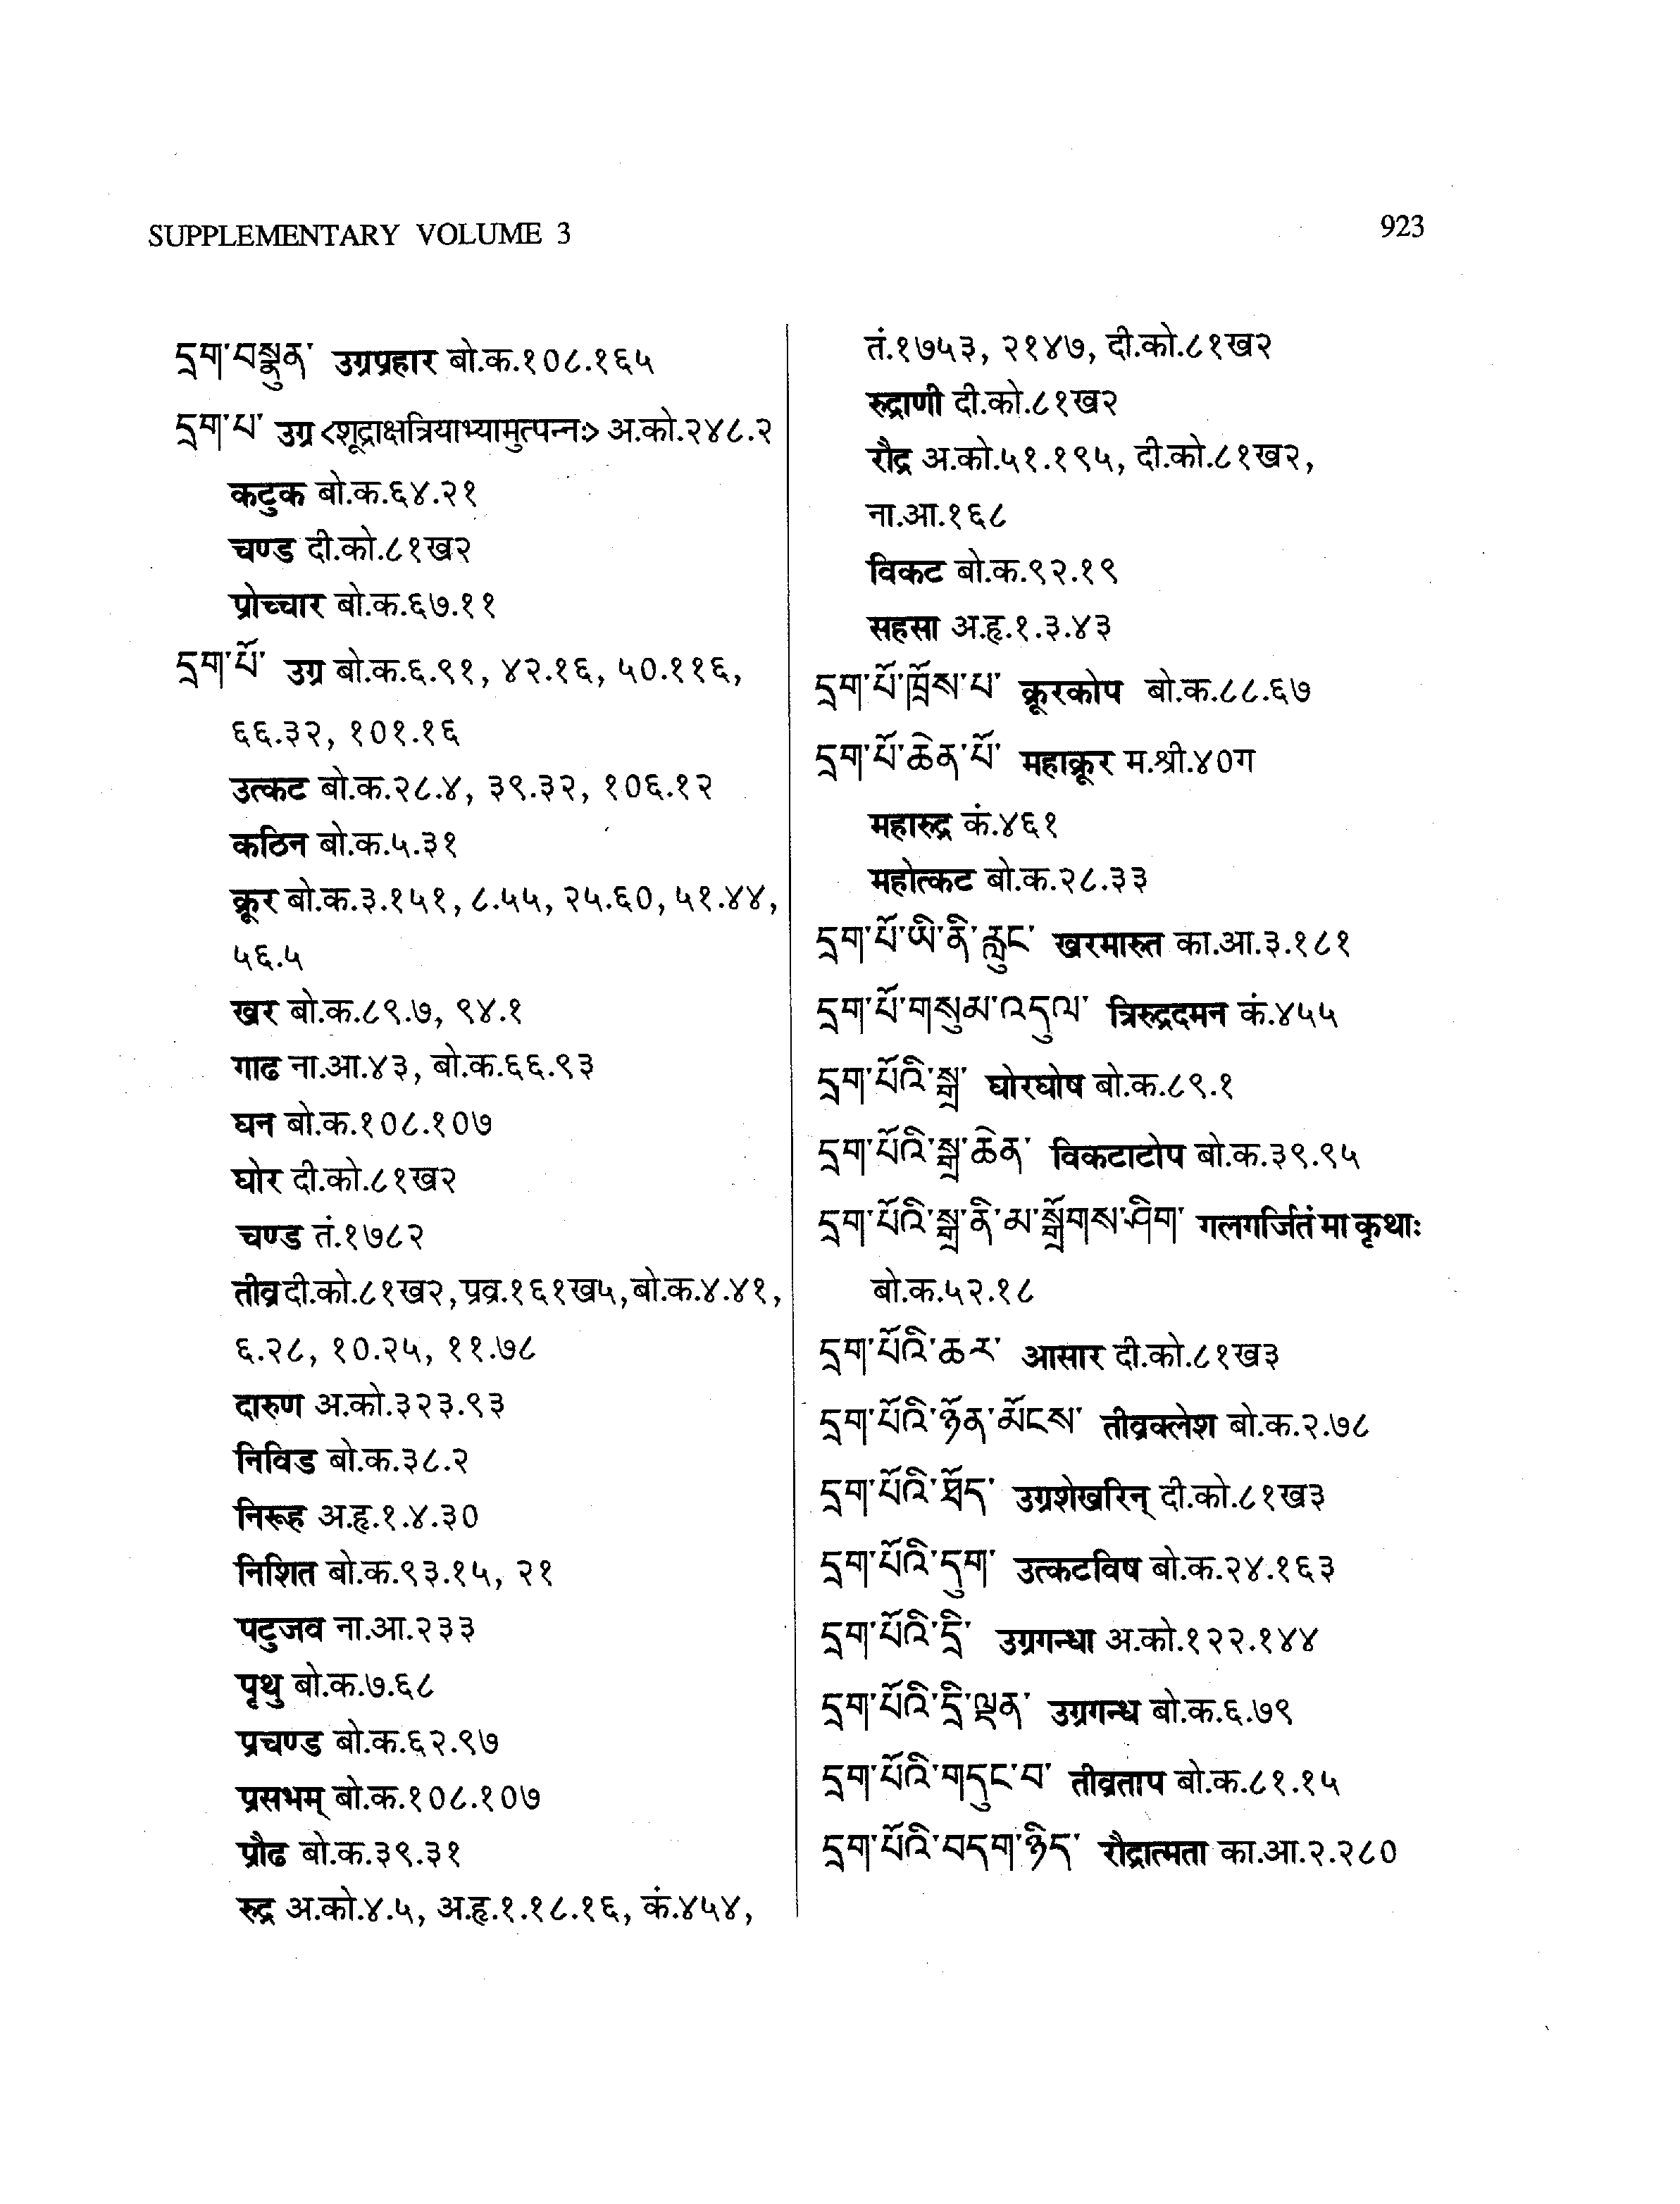 SUPPLEMENTARY VOLUME 3
923
དྲག་བསྣུན་ उग्रप्रहार बो.क.१०८.१६५
དྲག་པ་ उग्र <शूद्राक्षत्रियाभ्यामुत्पन्नः> अ.को.२४८.२
कटुक बो.क.६४.२१
चण्ड दी.को.८१ख२
प्रोच्चार बो.क.६७.११
དྲག་པོ་ उग्र बो.क.६.९१, ४२.१६, ५०.११६,
६६.३२, १०१.१६
उत्कट बो.क.२८.४, ३९.३२, १०६.१२
कठिन बो.क.५.३१
क्रूर बो.क.३.१५१, ८.५५, २५.६०, ५१.४४,
५६.५
खर बो.क.८९.७, ९४.१
गाढ ना.आ.४३, बो.क.६६.९३
घन बो.क.१०८.१०७
घोर दी.को.८१ख२
चण्ड तं.१७८२
तीव्र दी.को.८१ख२, प्रव्र.१६१ख५, बो.क.४.४१,
६.२८, १०.२५, ११.७८
दारुण अ.को.३२३.९३
निविड बो.क.३८.२
निरूह अ.हृ.१.४.३०
निशित बो.क.९३.१५, २१
पटुजव ना.आ.२३३
पृथु बो.क.७.६८
प्रचण्ड बो.क.६२.९७
प्रसभम् बो.क.१०८.१०७
प्रौढ बो.क.३९.३१
रुद्र अ.को.४.५, अ.हृ.१.१८.१६, कं.४५४,
तं.१७५३, २१४७, दी.को.८१ख२
रुद्राणी दी.को.८१ख२
रौद्र अ.को.५१.१९५, दी.को.८१ख२,
ना.आ.१६८
विकट बो.क.९२.१९
सहसा अ.हृ.१.३.४३
དྲག་པོ་ཁྲོས་པ་ क्रूरकोप बो.क.८८.६७
དྲག་པོ་ཆེན་པོ་ महाक्रूर म.श्री.४०ग
महारुद्र कं.४६१
महोत्कट बो.क.२८.३३
དྲག་པོ་ཡི་ནི་རླུང་ खरमारुत का.आ.३.१८१
དྲག་པོ་གསུམ་འདུལ་ त्रिरुद्रदमन कं.४५५
དྲག་པོའི་སྒྲ་ घोरघोष बो.क.८९.१
དྲག་པོའི་སྒྲ་ཆེན་ विकटाटोप बो.क.३९.९५
དྲག་པོའི་སྒྲ་ནི་མ་སྒྲོགས་ཤིག་ गलगर्जितं मा कृथाः
बो.क.५२.१८
དྲག་པོའི་ཆར་ आसार दी.को.८१ख३
དྲག་པོའི་ཉོན་མོངས་ तीव्रक्लेश बो.क.२.७८
དྲག་པོའི་ཐོད་ उग्रशेखरिन् दी.को.८१ख३
དྲག་པོའི་དུག་ उत्कटविष बो.क.२४.१६३
དྲག་པོའི་དྲི་ उग्रगन्धा अ.को.१२२.१४४
དྲག་པོའི་དྲི་ལྡན་ उग्रगन्ध बो.क.६.७९
དྲག་པོའི་གདུང་བ་ तीव्रताप बो.क.८१.१५
དྲག་པོའི་བདག་ཉིད་ रौद्रात्मता का.आ.२.२८०